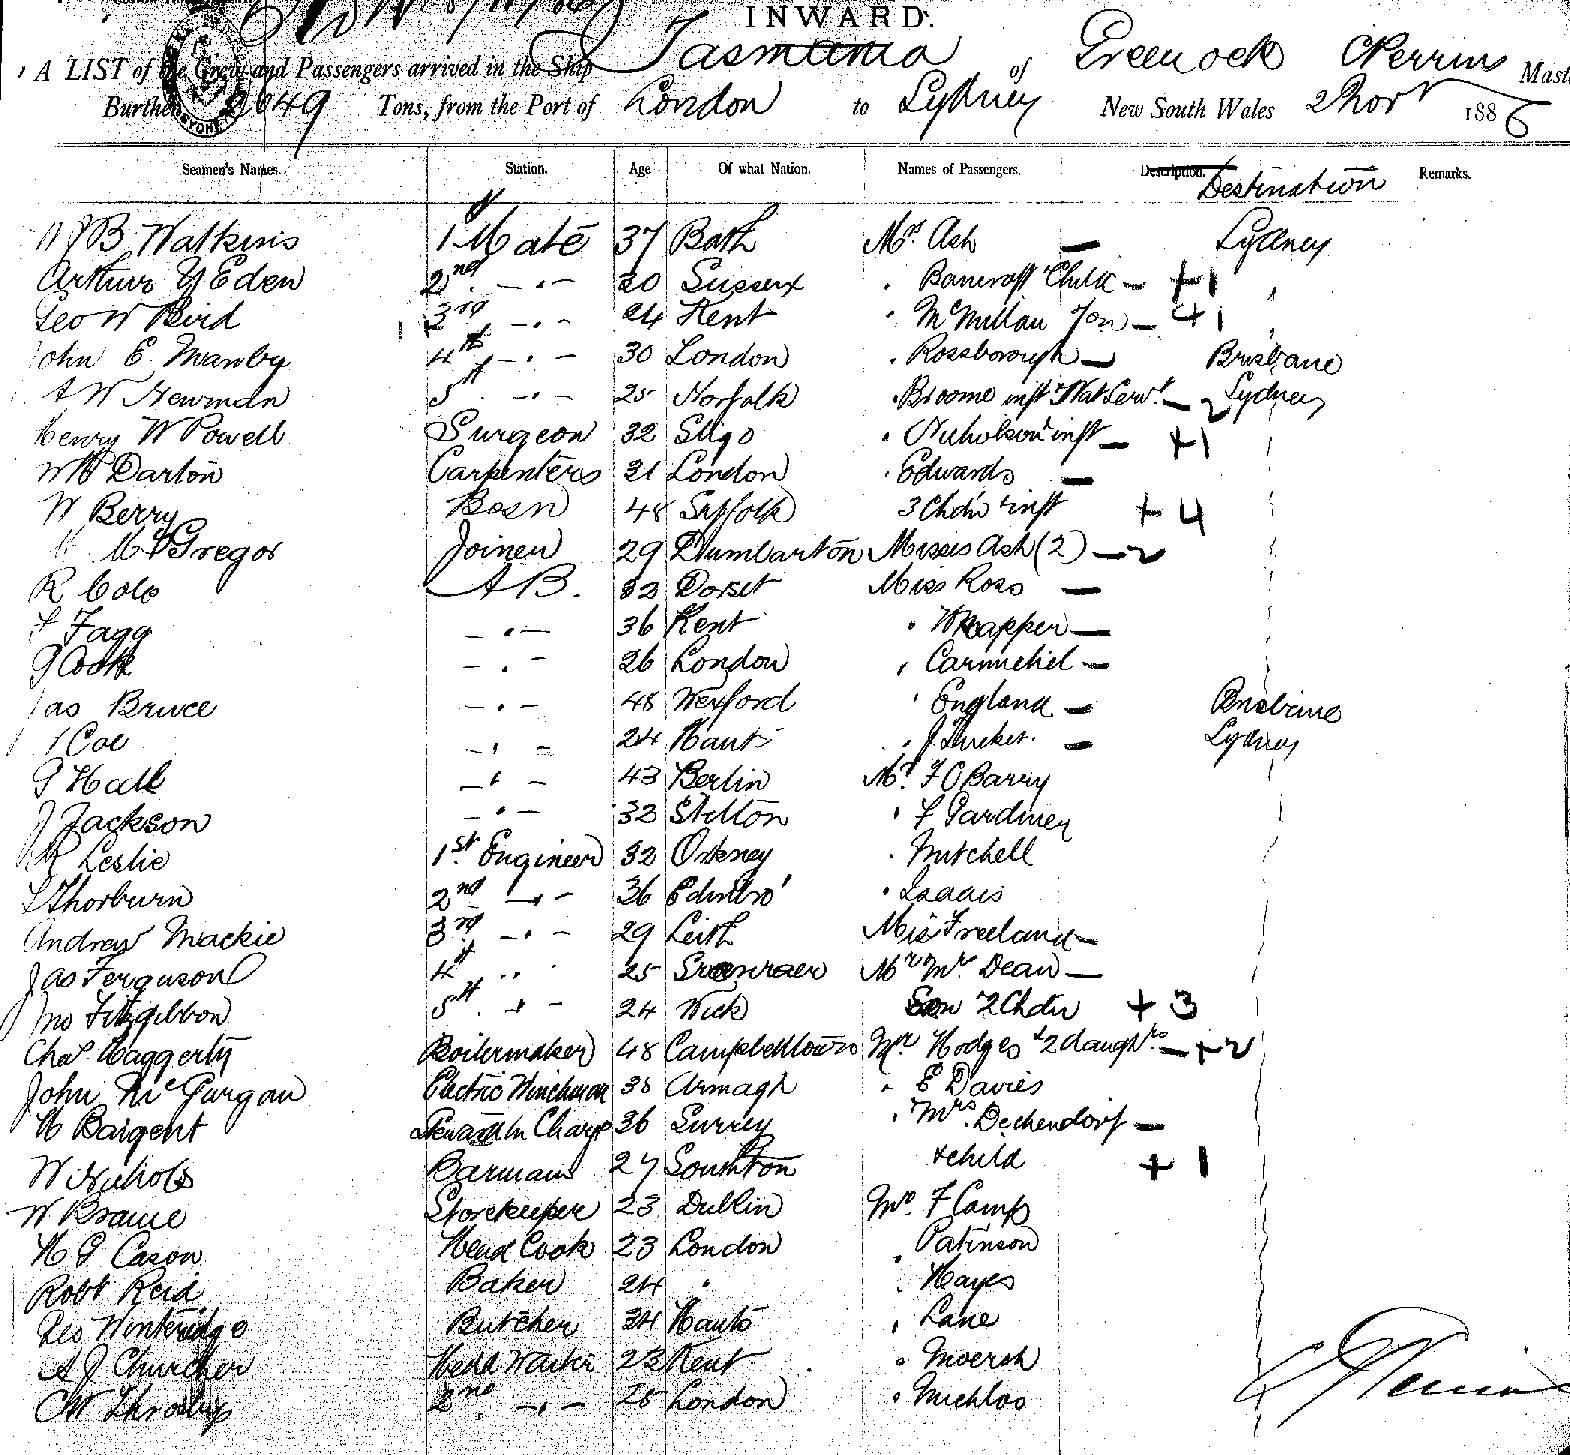 INWARD.
A LIST of the Crew and Passengers arrived in the Ship Tasmania of Greenock C Perrins Mast
Burthen 2049 Tons, from the Port of London to Sydney New South Wales 2 Novr 1886
Seamen's Names. Station. Age Of what Nation. Names of Passengers. Description. Destination Remarks.
B Watkins 1st Mate 37 Bath Mrs. Ash — Sydney
Arthur Y Eden 2nd — " — 30 Sussex " Bancroft Child — +1 "
Geo W Bird 3rd — " — 24 Kent " McMillan — +1 "
John E. Manby 4th — " — 30 London " Rossborough — Brisbane
A W Newman 5th — " — 25 Norfolk " Broome inft & Nat Servt. — 2 Sydney
Henry W Powell Surgeon 32 Sligo " Nicholson inft — +1
W H Darton Carpenters 31 London " Edwards —
W Berry Bosn 48 Suffolk 3 Chdn & inft + 4
McGregor Joiner 29 Dumbarton Misses Ash (2) — 2
R Cole A B. 32 Dorset Miss Ross —
F Fagg — " — 36 Kent " Wrapper —
G Cook — " — 26 London " Carmichel —
Jas Bruce — " — 48 Wexford " England — Brisbane
Coe — " — 24 Hants " J — Sydney
G Hall — " — 43 Berlin Mr. F O Barry
J Jackson — " — 32 Stilton " F Gardiner
R Leslie 1st. Engineer 32 Orkney " Mitchell
Thorburn 2nd — " — 36 Edinbro' " Isaacs
Andrew Mackie 3rd — " — 29 Leith Mis Freeland —
Jas Ferguson 4th " 25 Stranraer Mr Mrs Dean —
Jno Fitzgibbon 5th — " — 24 Wick Son 2 Chdn + 3
Chas Haggerty Boilermaker 48 Campbelltown Mrs Hodges + 2 daughtrs — +2
John McGurgan Electric Winchman 38 Armagh " E Davies
H Bargent Steward In Charge 36 Surrey " Mrs. Dechendorf —
W Nichols Barman 27 Southton + child + 1
W Brame Storekeeper 23 Dublin Mr. F Camp
H G Cason Head Cook 23 London " Patinson
Robt Reid Baker 24 " " Hayes
Geo Winteridge Butcher 34 Hants " Lane
A J Churcher Head Waiter 23 Kent " Moersh
C W Throsby 2nd — " — 25 London "